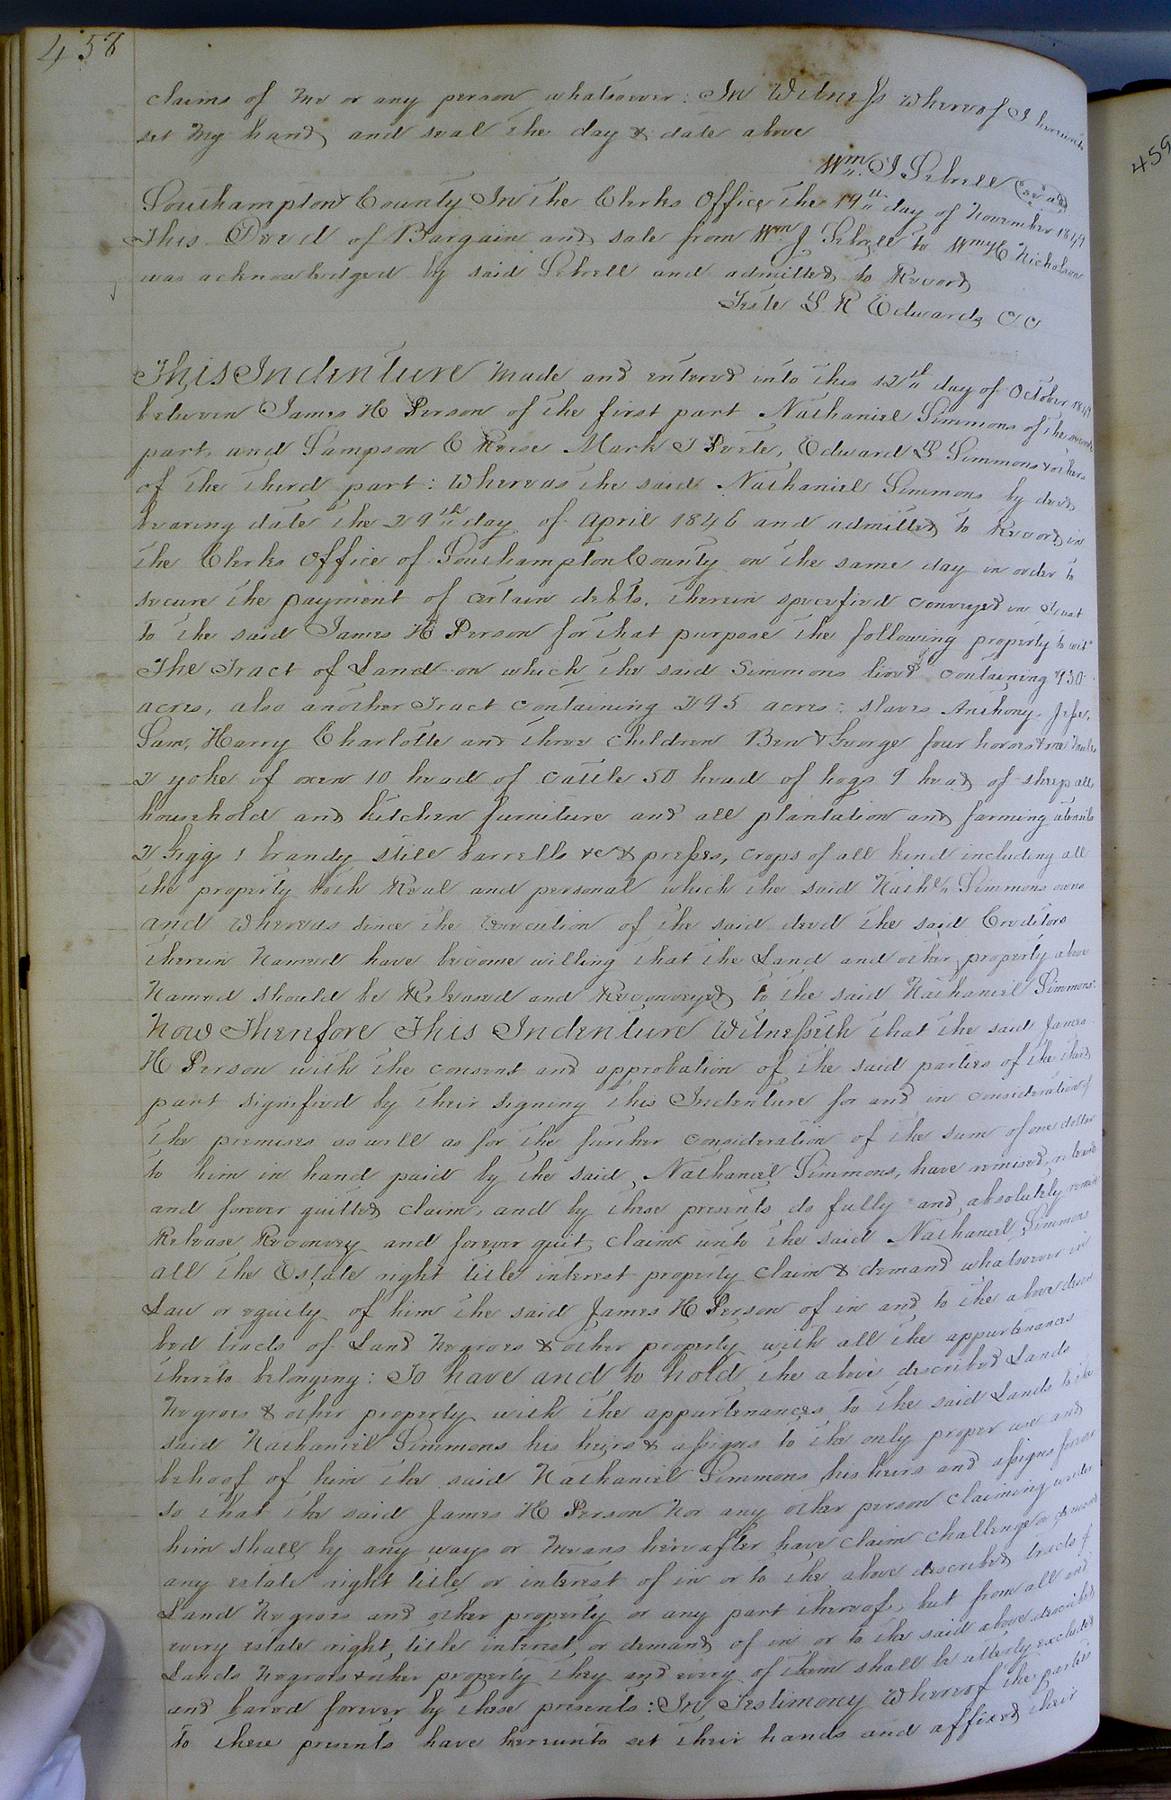 458
claims of me or any person whatsoever: In Witness whereof I hereunto
set my hand and seal the day & date above
Wm. J Sebrell {Seal}
Southampton County In the Clerks Office the 19th day of November 1849
This Deed of Bargain and sale from Wm J Sebrell to Wm H Nicholson
was acknowledged by said Sebrell and admitted to Record
Teste L R Edwards CC
459
This Indenture Made and entered into this 12th day of October 1849
between James H Person of the first part Nathaniel Simmons of the second
part, and Sampson C Reese Mark J Pretle, Edward S Simmons & others
of the third part: Whereas the said Nathaniel Simmons by deed
bearing date the 29th day of April 1846 and admitted to Record in
the Clerks Office of Southampton County on the same day in order to
secure the payment of certain debts, therein specefied conveyed in trust
to the said James H Person for that purpose the following property to wit
The Tract of Land on which the said Simmons lived containing 930
acres, also another Tract containing 295 acres: slaves Anthony, Jesse,
Sam, Harry Charlotte and three children Ben & George four horses & one Mule
2 yoke of oxen 10 head of cattle 50 head of hogs 9 head of sheep all
household and kitchen furniture and all plantation and farming utensils
2 Giggs 1 brandy still barrells &c & presses, crops of all kind including all
the property both Real and personal which the said Nathl. Simmons owns
and Whereas since the execution of the said deed the said Creditors
therein Named have become willing that the Land and other property above
Named should be Released and Reconveyed to the said Nathaniel Simmons.
Now Therefore This Indenture Witnesseth that the said James
H Person with the consent and approbation of the said parties of the third
part signified by their signing this Indenture for and in consideration of
the premises as well as for the further consideration of the sum of one dollar
to him in hand paid by the said Nathaniel Simmons, have remised, released
and forever quitted claim, and by these presents do fully and absolutely remise
Release Reconvey and forever quit claim unto the said Nathaniel Simmons
all the Estate right title interest property claim & demand whatsoever in
Law or equity of him the said James H Person of in and to the above descri
bed tracts of Land Negroes & other property with all the appurtenances
thereto belonging: To have and to hold the above described Lands
Negroes & other property with the appurtenances to the said Lands to the
said Nathaniel Simmons his heirs & assigns to the only proper use and
behoof of him the said Nathaniel Simmons his heirs and assigns forever
so that the said James H Person Nor any other person claiming under
him shall by any ways or Means hereafter have claim challenge or demand
any estate right title or interest of in or to the above described tracts of
Land Negroes and other property or any part thereof, but from all and
every estate right title interest or demand of in or to the said above described
Lands Negroes & other property they and every of them shall be utterly excluded
and bared forever by these presents: In Testimony Whereof the parties
to these presents have hereunto set their hands and affixed their